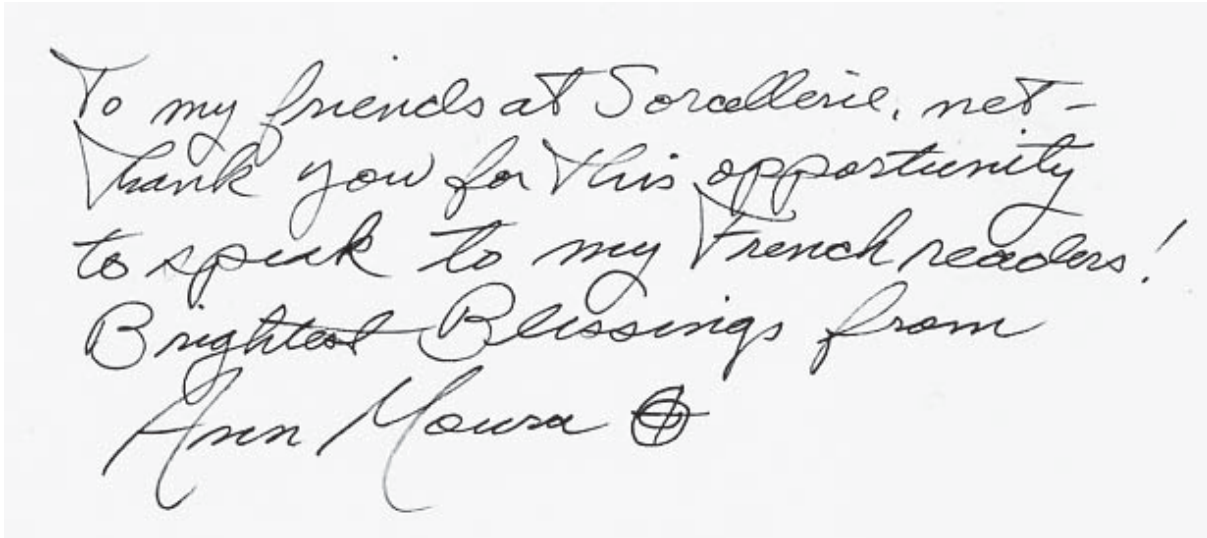 To my friends at Sorcellerie.net -
Thank you for this opportunity
to speak to my French readers!
Brightest Blessings from
Ann Moura